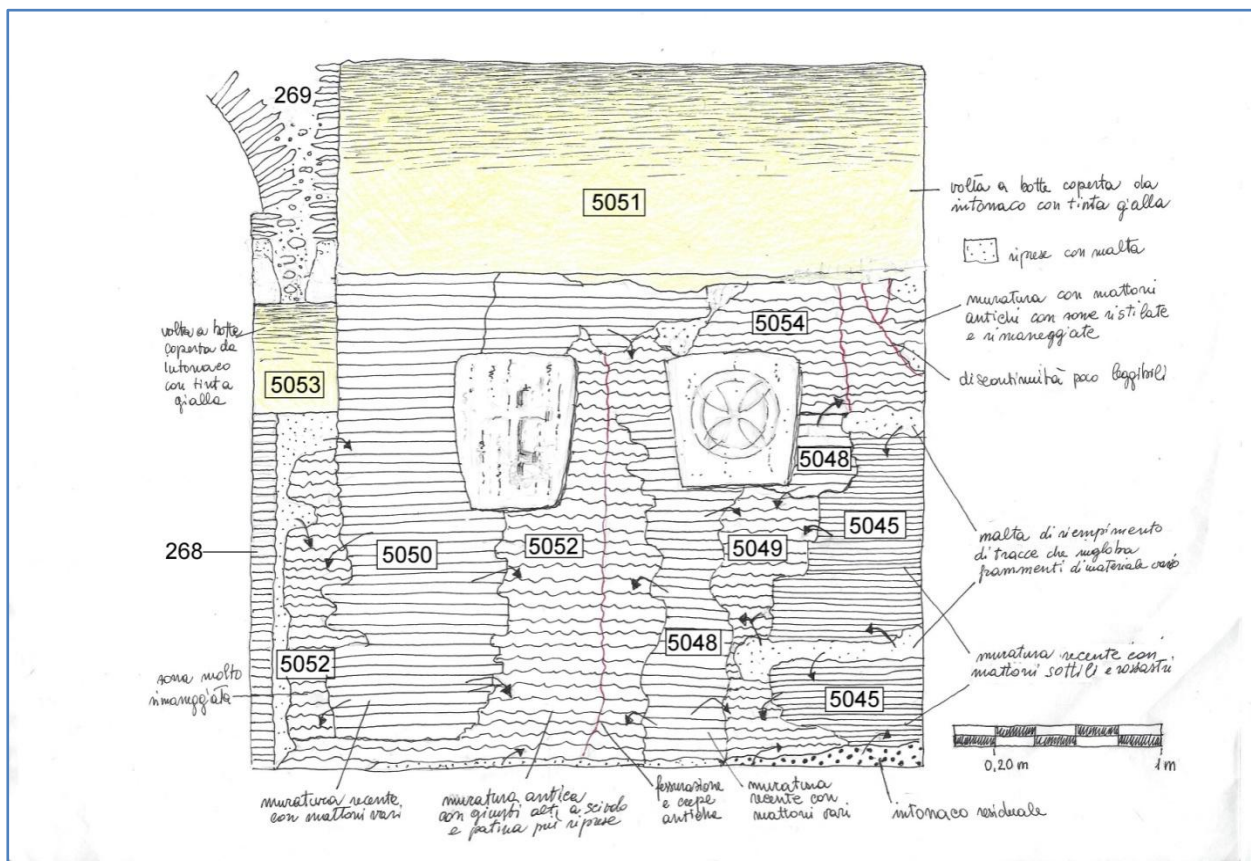 269
5051
volta a botte coperta da
intonaco con tinta gialla
riprese con malta
muratura con mattoni
antichi con zone ristilate
e rimaneggiate
5054
discontinuità poco leggibili
volta a botte
coperta da
intonaco
con tinta
gialla
5053
5048
268
5050
5052
5049
5045
malta di riempimento
di tracce che ingloba
frammenti di materiale vario
5048
5052
muratura recente con
mattoni sottili e rossastri
zona molto
rimaneggiata
5045
0,20 m
1 m
muratura recente
con mattoni vari
muratura antica
con giunti alti, a scivolo
e patina più riprese
fessurazione
e crepe
antiche
muratura
recente con
mattoni vari
intonaco residuale